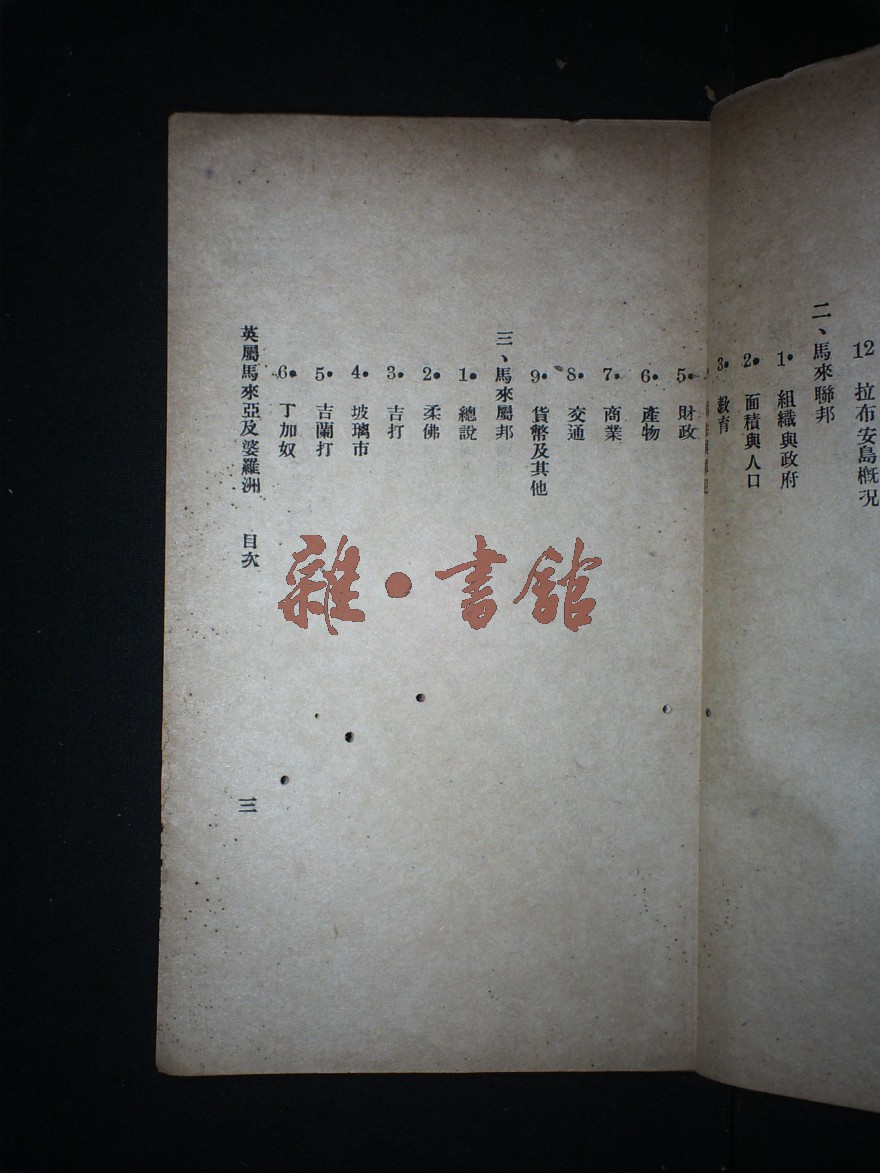 12 拉布安島概況
二、馬來聯邦
1. 組織與政府
2. 面積與人口
3. 教育
5. 財政
6. 產物
7. 商業
8. 交通
9. 貨幣及其他
三、馬來屬邦
1. 總說
2. 柔佛
3. 吉打
4. 坡璃市
5. 吉蘭打
6. 丁加奴
英屬馬來亞及婆羅洲 目次
三
雜·書館